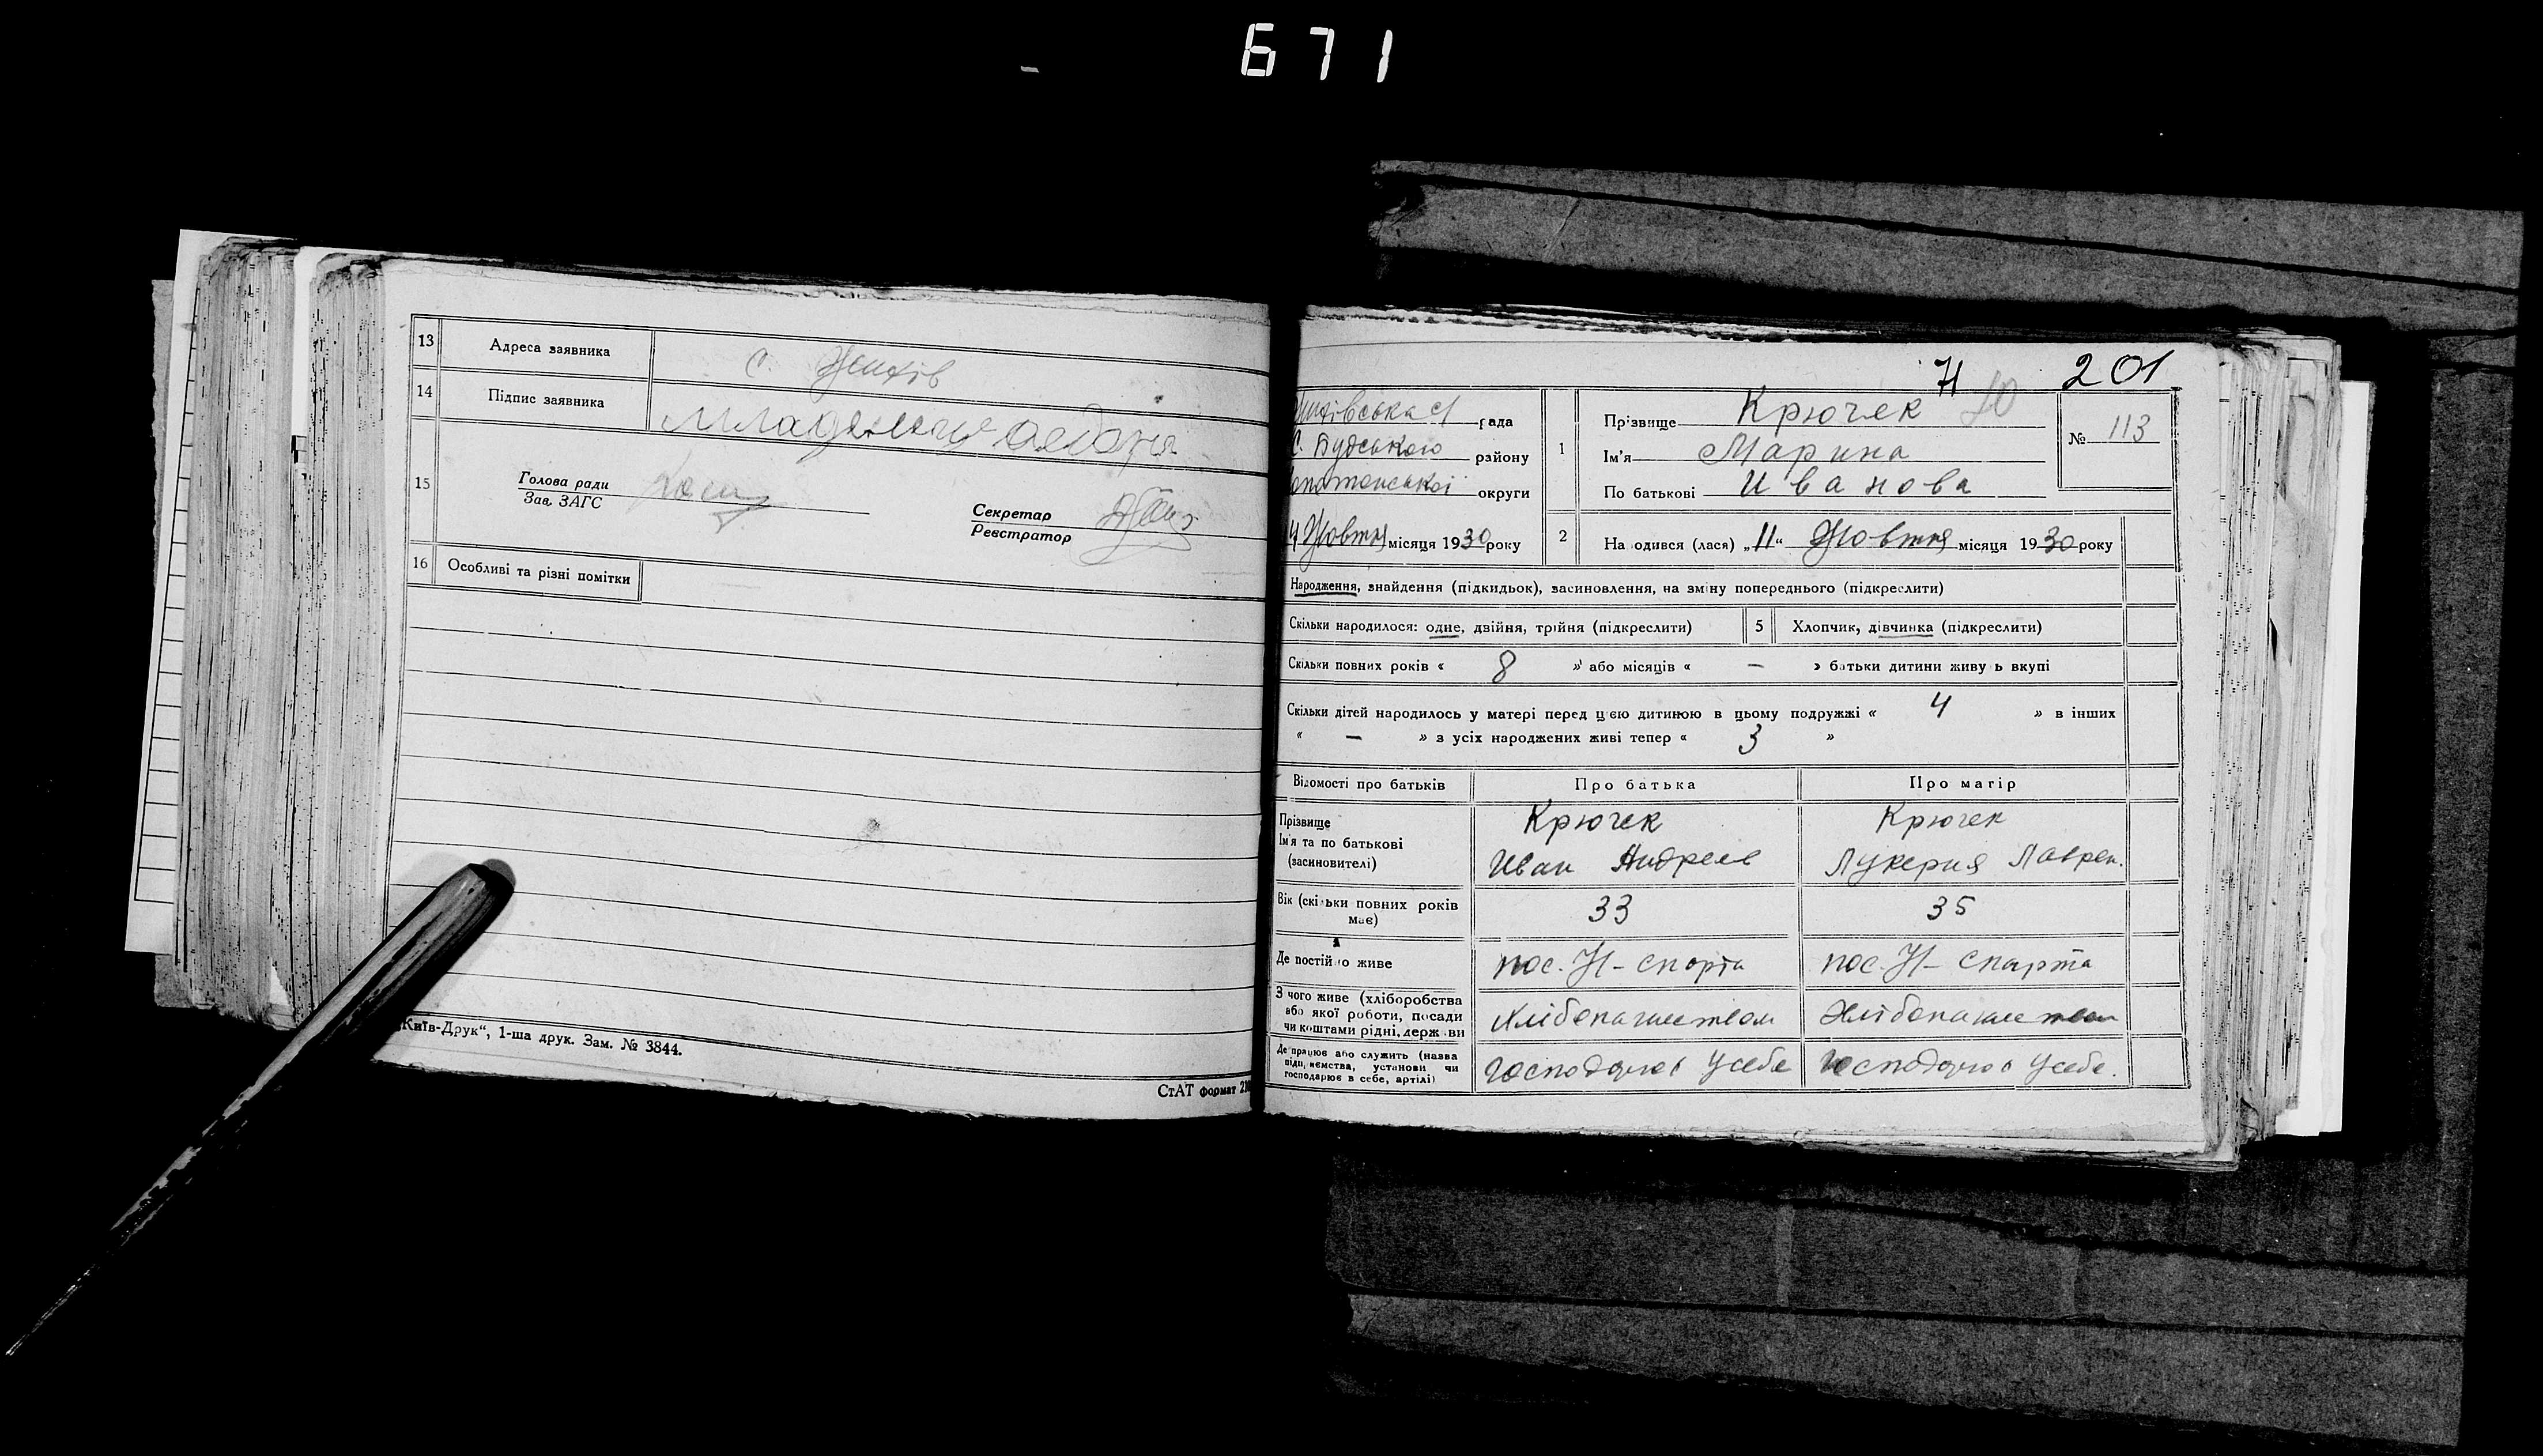 671
13 Адреса заявника с. Жихів
14 Підпис заявника
15 Голова ради
Зав. ЗАГС
Секретар
Реєстратор
16 Особливі та різні помітки
„Київ-Друк“, 1-ша друк. Зам. № 3844.
СтАТ формат 210
Н 20 201
рада
С. Будського району
округи
Жовтня місяця 1930 року
1 Прізвище Крючек
Ім'я Марина
По батькові Иванова
№ 113
2 На одився (лася) „11“ Жовтня місяця 1930 року
Народження, знайдення (підкидьок), засиновлення, на зміну попереднього (підкреслити)
Скільки народилося: одне, двійня, трійня (підкреслити) 5 Хлопчик, дівчинка (підкреслити)
Скільки повних років « 8 » або місяців « — » батьки дитини живу ь вкупі
Скільки дітей народилось у матері перед цією дитиною в цьому подружжі « 4 » в інших
« — » з усіх народжених живі тепер « 3 »
Відомості про батьків Про батька Про матір
Прізвище Крючек Крючек
Ім'я та по батькові Иван Андреев Лукерия Лаврен.
(засиновителі)
Вік (скільки повних років має) 33 35
Де постійно живе пос. Н-Спарта пос. Н-Спарта
З чого живе (хліборобства
або якої роботи, посади
чи коштами рідні, держави Хлібопашеством Хлібопашеством
Де працює або служить (назва
підприємства, установи чи
господарює в себе, артілі) усебе усебе.